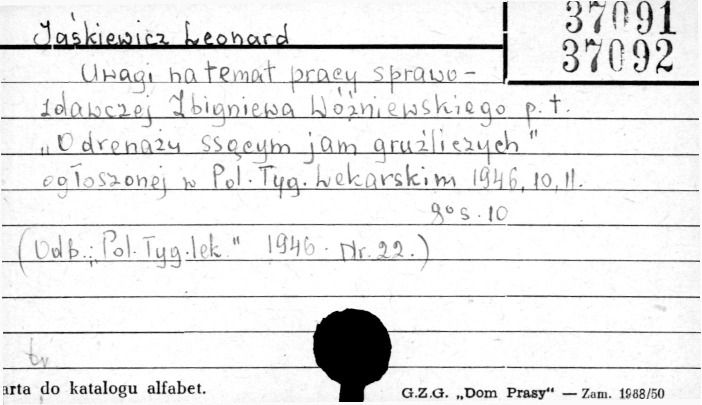 37091
37092
Jaśkiewicz Leonard
Uwagi na temat pracy sprawo-
zdawczej Zbigniewa Wóźniewskiego p.t.
„O drenażu ssącym jam gruźliczych"
ogłoszonej w Pol. Tyg. Lekarskim 1946, 10, 11.
8° s. 10
(Odb. „Pol. Tyg. lek." 1946. Nr. 22.)
arta do katalogu alfabet.
G.Z.G. „Dom Prasy" — Zam. 1988/50